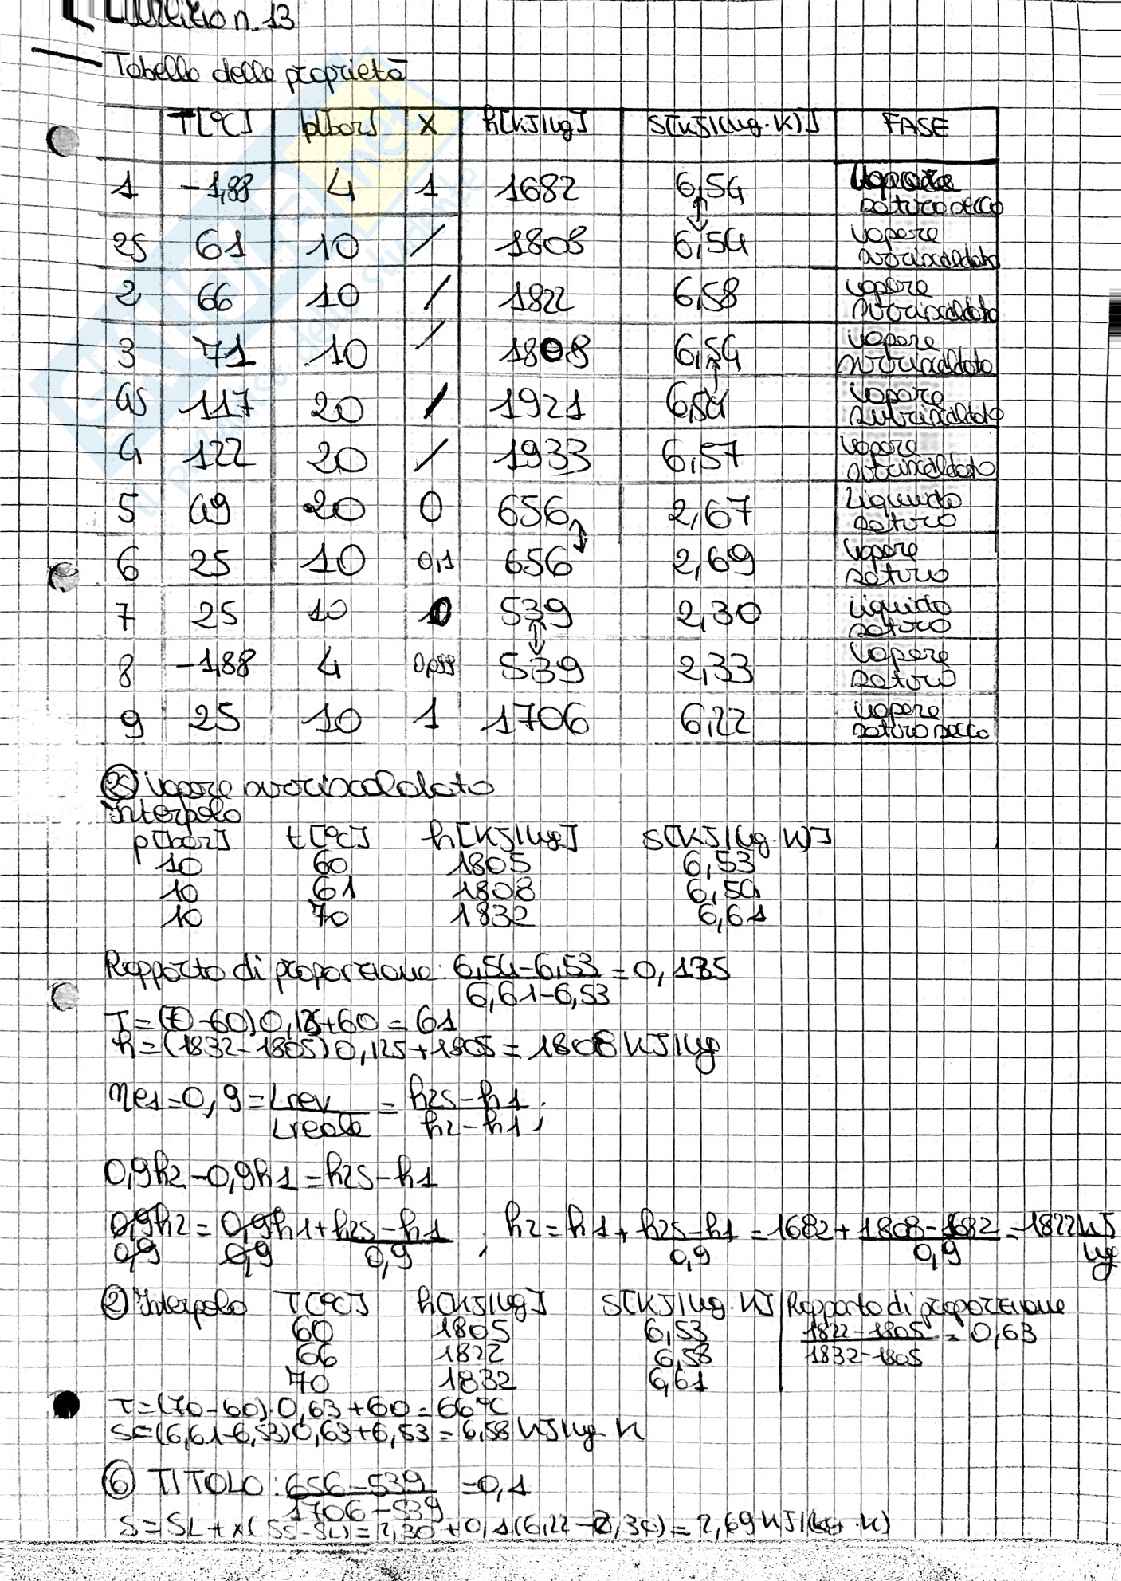 Esercizio n. 13
Tabella delle proprietà
T[°C] p[bar] X h[KJ/kg] S[KJ/(kg·K)] FASE
1 -1,88 4 1 1682 6,54 vapore saturo secco
2S 61 10 / 1808 6,54 vapore surriscaldato
2 66 10 / 1822 6,58 vapore surriscaldato
3 71 10 / 1808 6,54 vapore surriscaldato
4S 117 20 / 1921 6,54 vapore surriscaldato
4 122 20 / 1933 6,57 vapore surriscaldato
5 49 20 0 656 2,67 Liquido saturo
6 25 10 0,1 656 2,69 vapore saturo
7 25 10 0 539 2,30 Liquido saturo
8 -1,88 4 539 2,33 vapore saturo
9 25 10 1 1706 6,22 vapore saturo secco
2S vapore surriscaldato
Interpolo
p[bar] t[°C] h[KJ/kg] S[KJ/(kg·K)]
10 60 1805 6,53
10 61 1808 6,54
10 70 1832 6,61
Rapporto di proporzione: 6,54-6,53 / 6,61-6,53 = 0,125
T=(70-60)0,125+60=61
h=(1832-1805)0,125+1805=1808 KJ/kg
ηe1=0,9= Lrev / Lreale = h2S-h1 / h2-h1 ;
0,9h2-0,9h1=h2S-h1
0,9h2 / 0,9 = 0,9h1 / 0,9 + h2S-h1 / 0,9 ; h2=h1+ h2S-h1 / 0,9 =1682+ 1808-1682 / 0,9 =1822 KJ/kg
2 Interpolo T[°C] h[KJ/kg] S[KJ/kg·K] Rapporto di proporzione
60 1805 6,53 1822-1805 / 1832-1805 = 0,63
66 1822 6,58
70 1832 6,61
T=(70-60)·0,63+60=66°C
S=(6,61-6,53)0,63+6,53=6,58 KJ/kg·K
6 TITOLO: 656-539 / 1706-539 =0,1
S=SL+x(SS-SL)=2,30+0,1(6,22-2,30)=2,69 KJ/(kg·K)